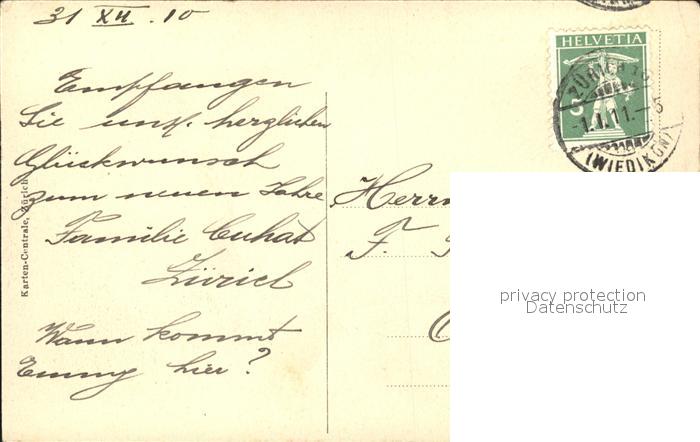 31 XII .10
Empfangen
Sie uns. herzlichen
Glückwunsch
zum neuen Jahre
Familie Cuhat
Zürich
Wann kommt
Emmy hier?
Karten-Centrale, Zürich
HELVETIA
5
ZÜRICH
-1.I.11.-5
(WIEDIKON)
Herrn
F.
privacy protection
Datenschutz